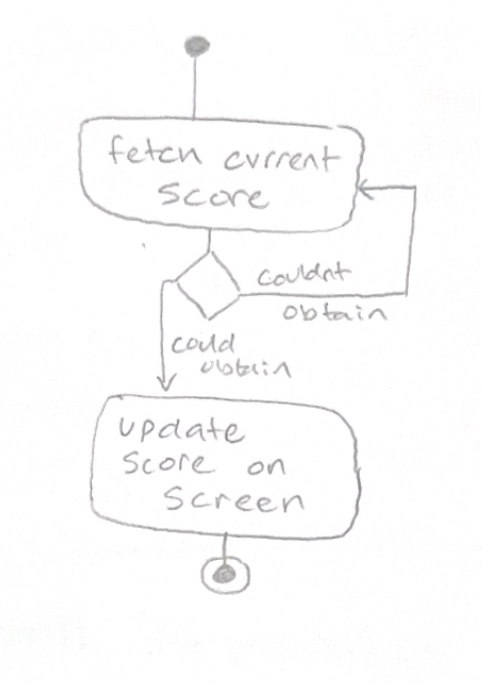 fetch current
score
couldnt
obtain
could
obtain
update
score on
screen